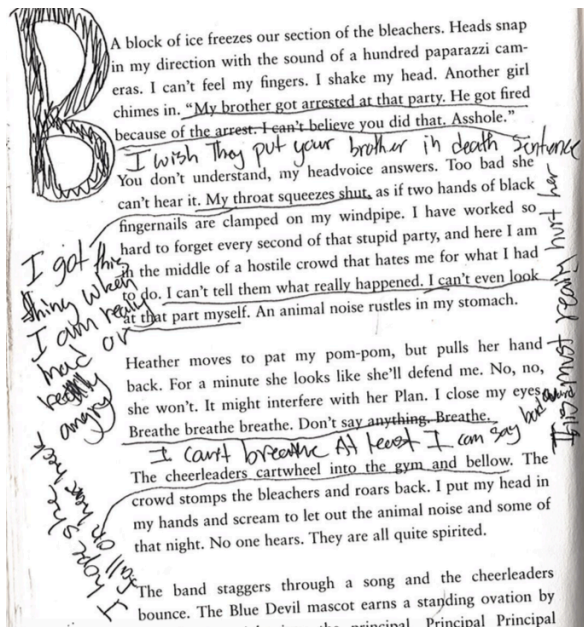 B
A block of ice freezes our section of the bleachers. Heads snap
in my direction with the sound of a hundred paparazzi cam-
eras. I can't feel my fingers. I shake my head. Another girl
chimes in. “My brother got arrested at that party. He got fired
because of the arrest. I can't believe you did that. Asshole.”
I wish They put your brother in death Sentence
You don't understand, my headvoice answers. Too bad she
can't hear it. My throat squeezes shut, as if two hands of black
fingernails are clamped on my windpipe. I have worked so
hard to forget every second of that stupid party, and here I am
in the middle of a hostile crowd that hates me for what I had
to do. I can't tell them what really happened. I can't even look
at that part myself. An animal noise rustles in my stomach.
I got this
thing when
I am really
mad or
really
angry
hurt her
Heather moves to pat my pom-pom, but pulls her hand
back. For a minute she looks like she'll defend me. No, no,
she won't. It might interfere with her Plan. I close my eyes.
Breathe breathe breathe. Don't say anything. Breathe.
I can't breathe At least I can say
The cheerleaders cartwheel into the gym and bellow. The
crowd stomps the bleachers and roars back. I put my head in
my hands and scream to let out the animal noise and some of
that night. No one hears. They are all quite spirited.
I hope she
fall on her neck
The band staggers through a song and the cheerleaders
bounce. The Blue Devil mascot earns a standing ovation by
principal. Principal Principal